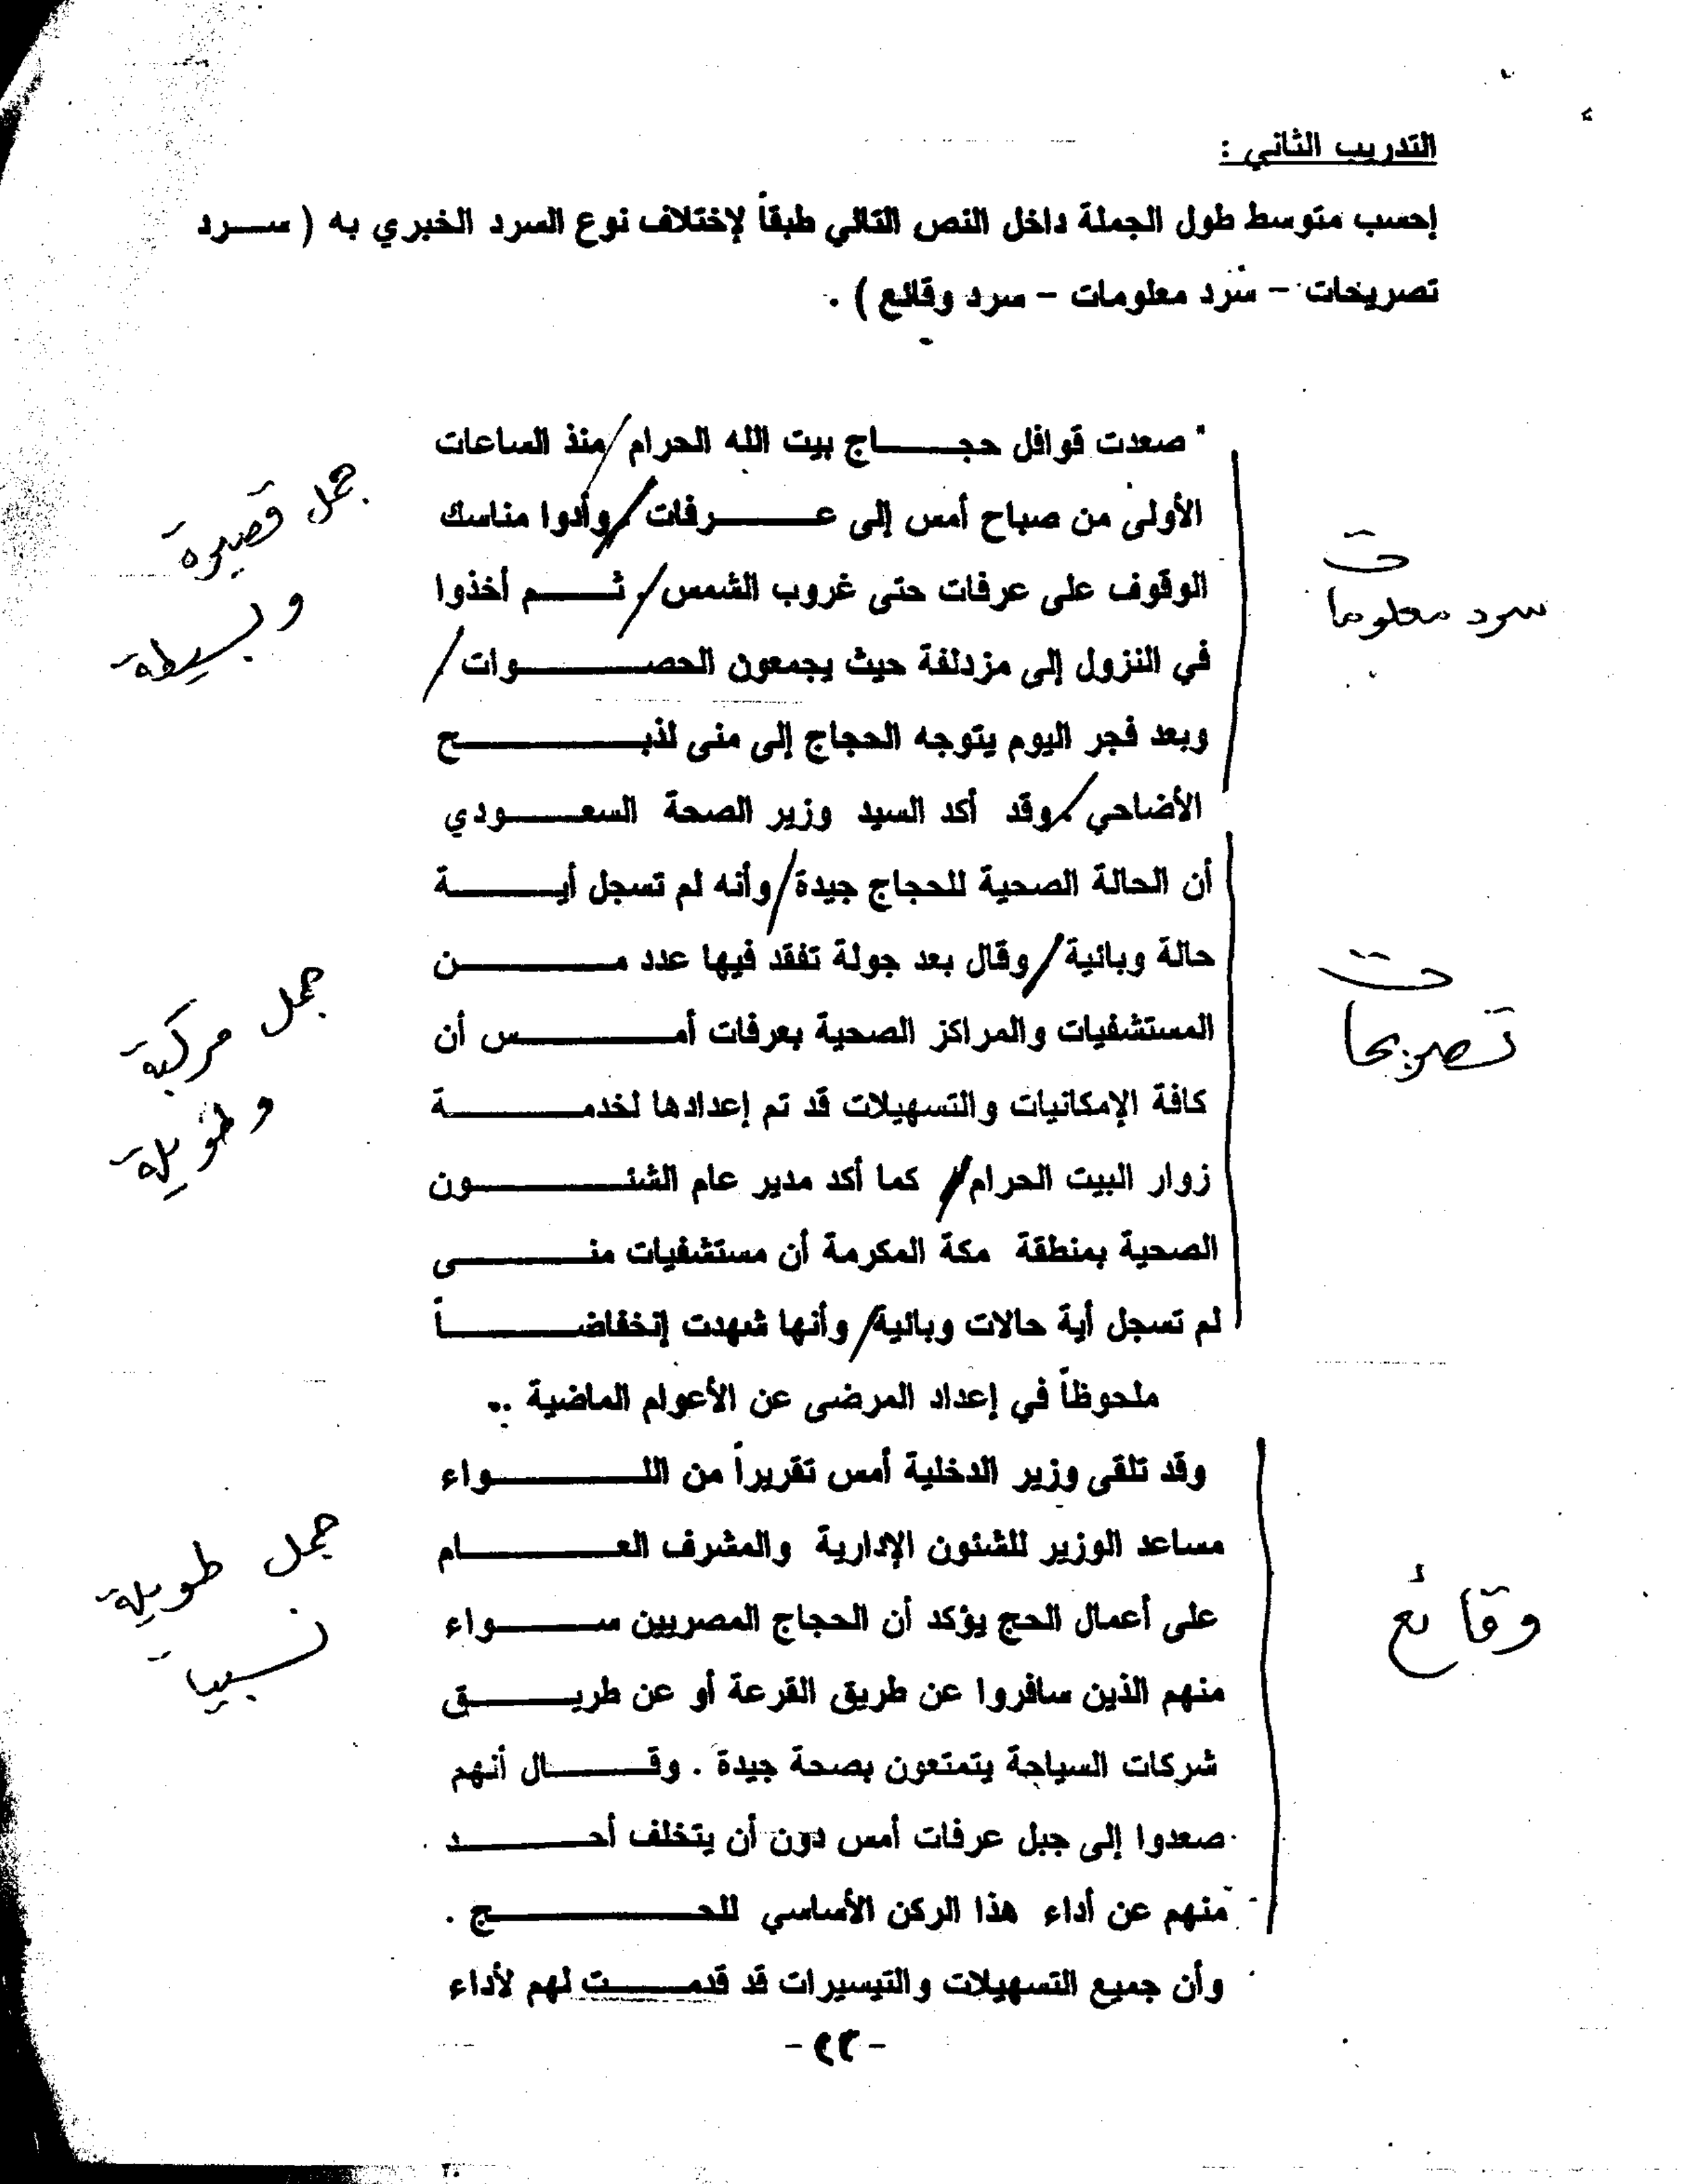 التدريب الثاني :
إحسب متوسط طول الجملة داخل النص التالي طبقاً لإختلاف نوع السرد الخبري به ( سرد
تصريحات - سرد معلومات - سرد وقائع ) .
" صعدت قوافل حجاج بيت الله الحرام / منذ الساعات
الأولى من صباح أمس إلى عرفات / وأدوا مناسك
الوقوف على عرفات حتى غروب الشمس / ثم أخذوا
في النزول إلى مزدلفة حيث يجمعون الحصوات /
وبعد فجر اليوم يتوجه الحجاج إلى منى لذبح
الأضاحي / وقد أكد السيد وزير الصحة السعودي
أن الحالة الصحية للحجاج جيدة / وأنه لم تسجل أية
حالة وبائية / وقال بعد جولة تفقد فيها عدد من
المستشفيات والمراكز الصحية بعرفات أمس أن
كافة الإمكانيات والتسهيلات قد تم إعدادها لخدمة
زوار البيت الحرام / كما أكد مدير عام الشئون
الصحية بمنطقة مكة المكرمة أن مستشفيات منى
لم تسجل أية حالات وبائية / وأنها شهدت إنخفاضاً
ملحوظاً في إعداد المرضى عن الأعوام الماضية ..
وقد تلقى وزير الدخلية أمس تقريراً من اللواء
مساعد الوزير للشئون الإدارية والمشرف العام
على أعمال الحج يؤكد أن الحجاج المصريين سواء
منهم الذين سافروا عن طريق القرعة أو عن طريق
شركات السياحة يتمتعون بصحة جيدة . وقال أنهم
صعدوا إلى جبل عرفات أمس دون أن يتخلف أحد
منهم عن أداء هذا الركن الأساسي للحج .
وأن جميع التسهيلات والتيسيرات قد قدمت لهم لأداء
- ٢٢ -
سرد معلومات
تصريحات
وقائع
جمل قصيرة
وبسيطة
جمل مركبة
وطويلة
جمل طويلة
نسبياً